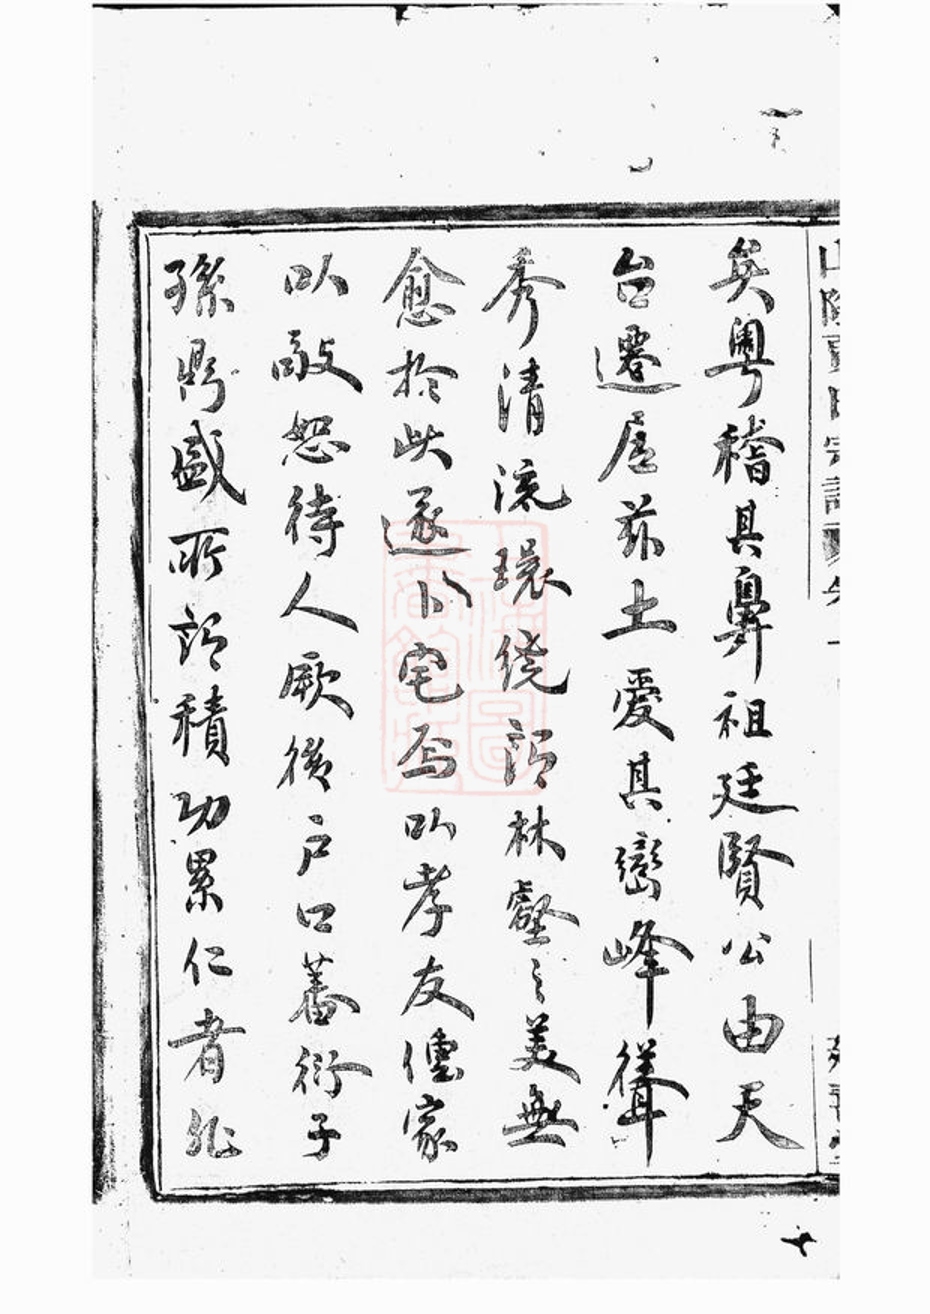 矣粤稽其鼻祖廷賢公由天
台遷居兹土愛其巒峰聳
秀清流環繞謂林壑之美無
愈於此遂卜宅焉以孝友傳家
以敬恕待人厥後户口蕃衍子
孫鼎盛所謂積功累仁者非